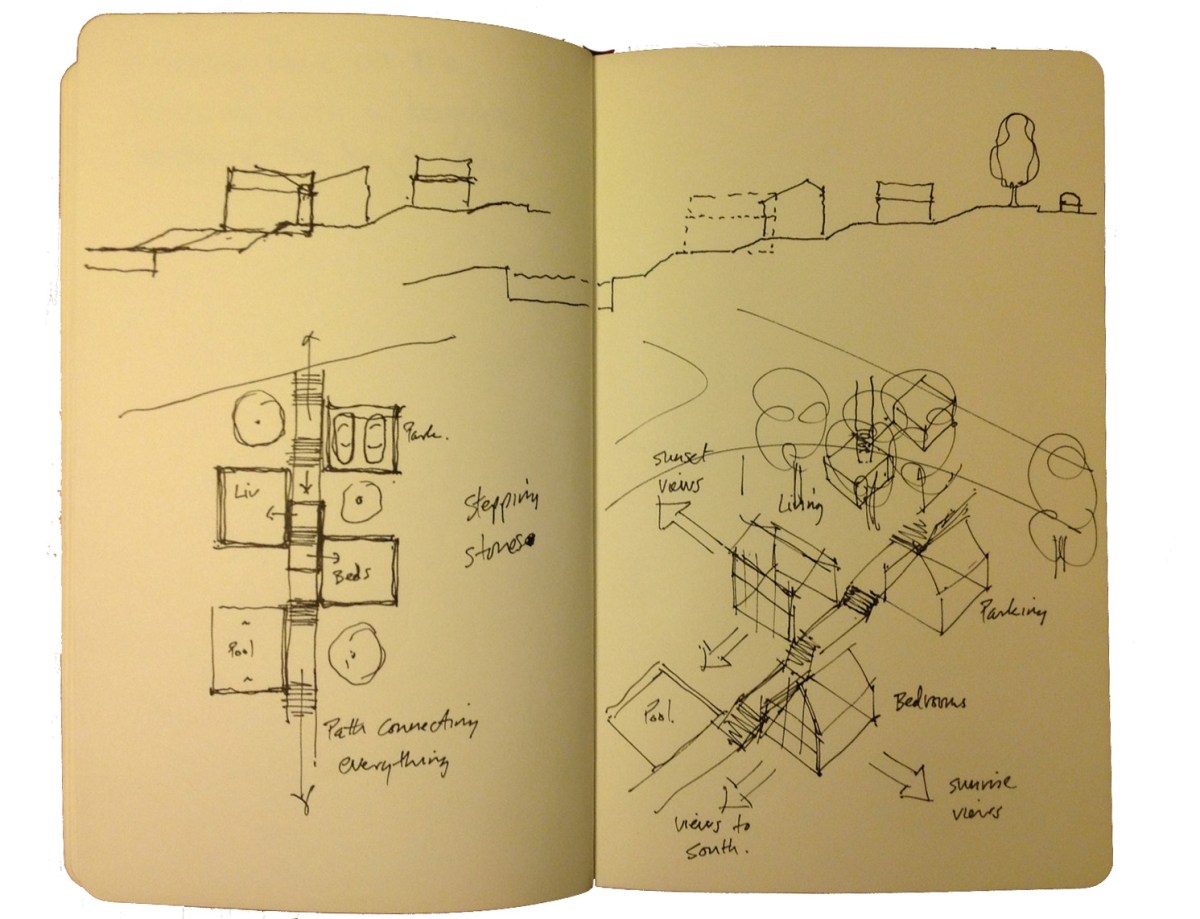 Park.
Liv
Beds
Pool
stepping
stones
Path connecting
everything
sunset
views
Living
Parking
Pool
Bedrooms
sunrise
views
views to
south.